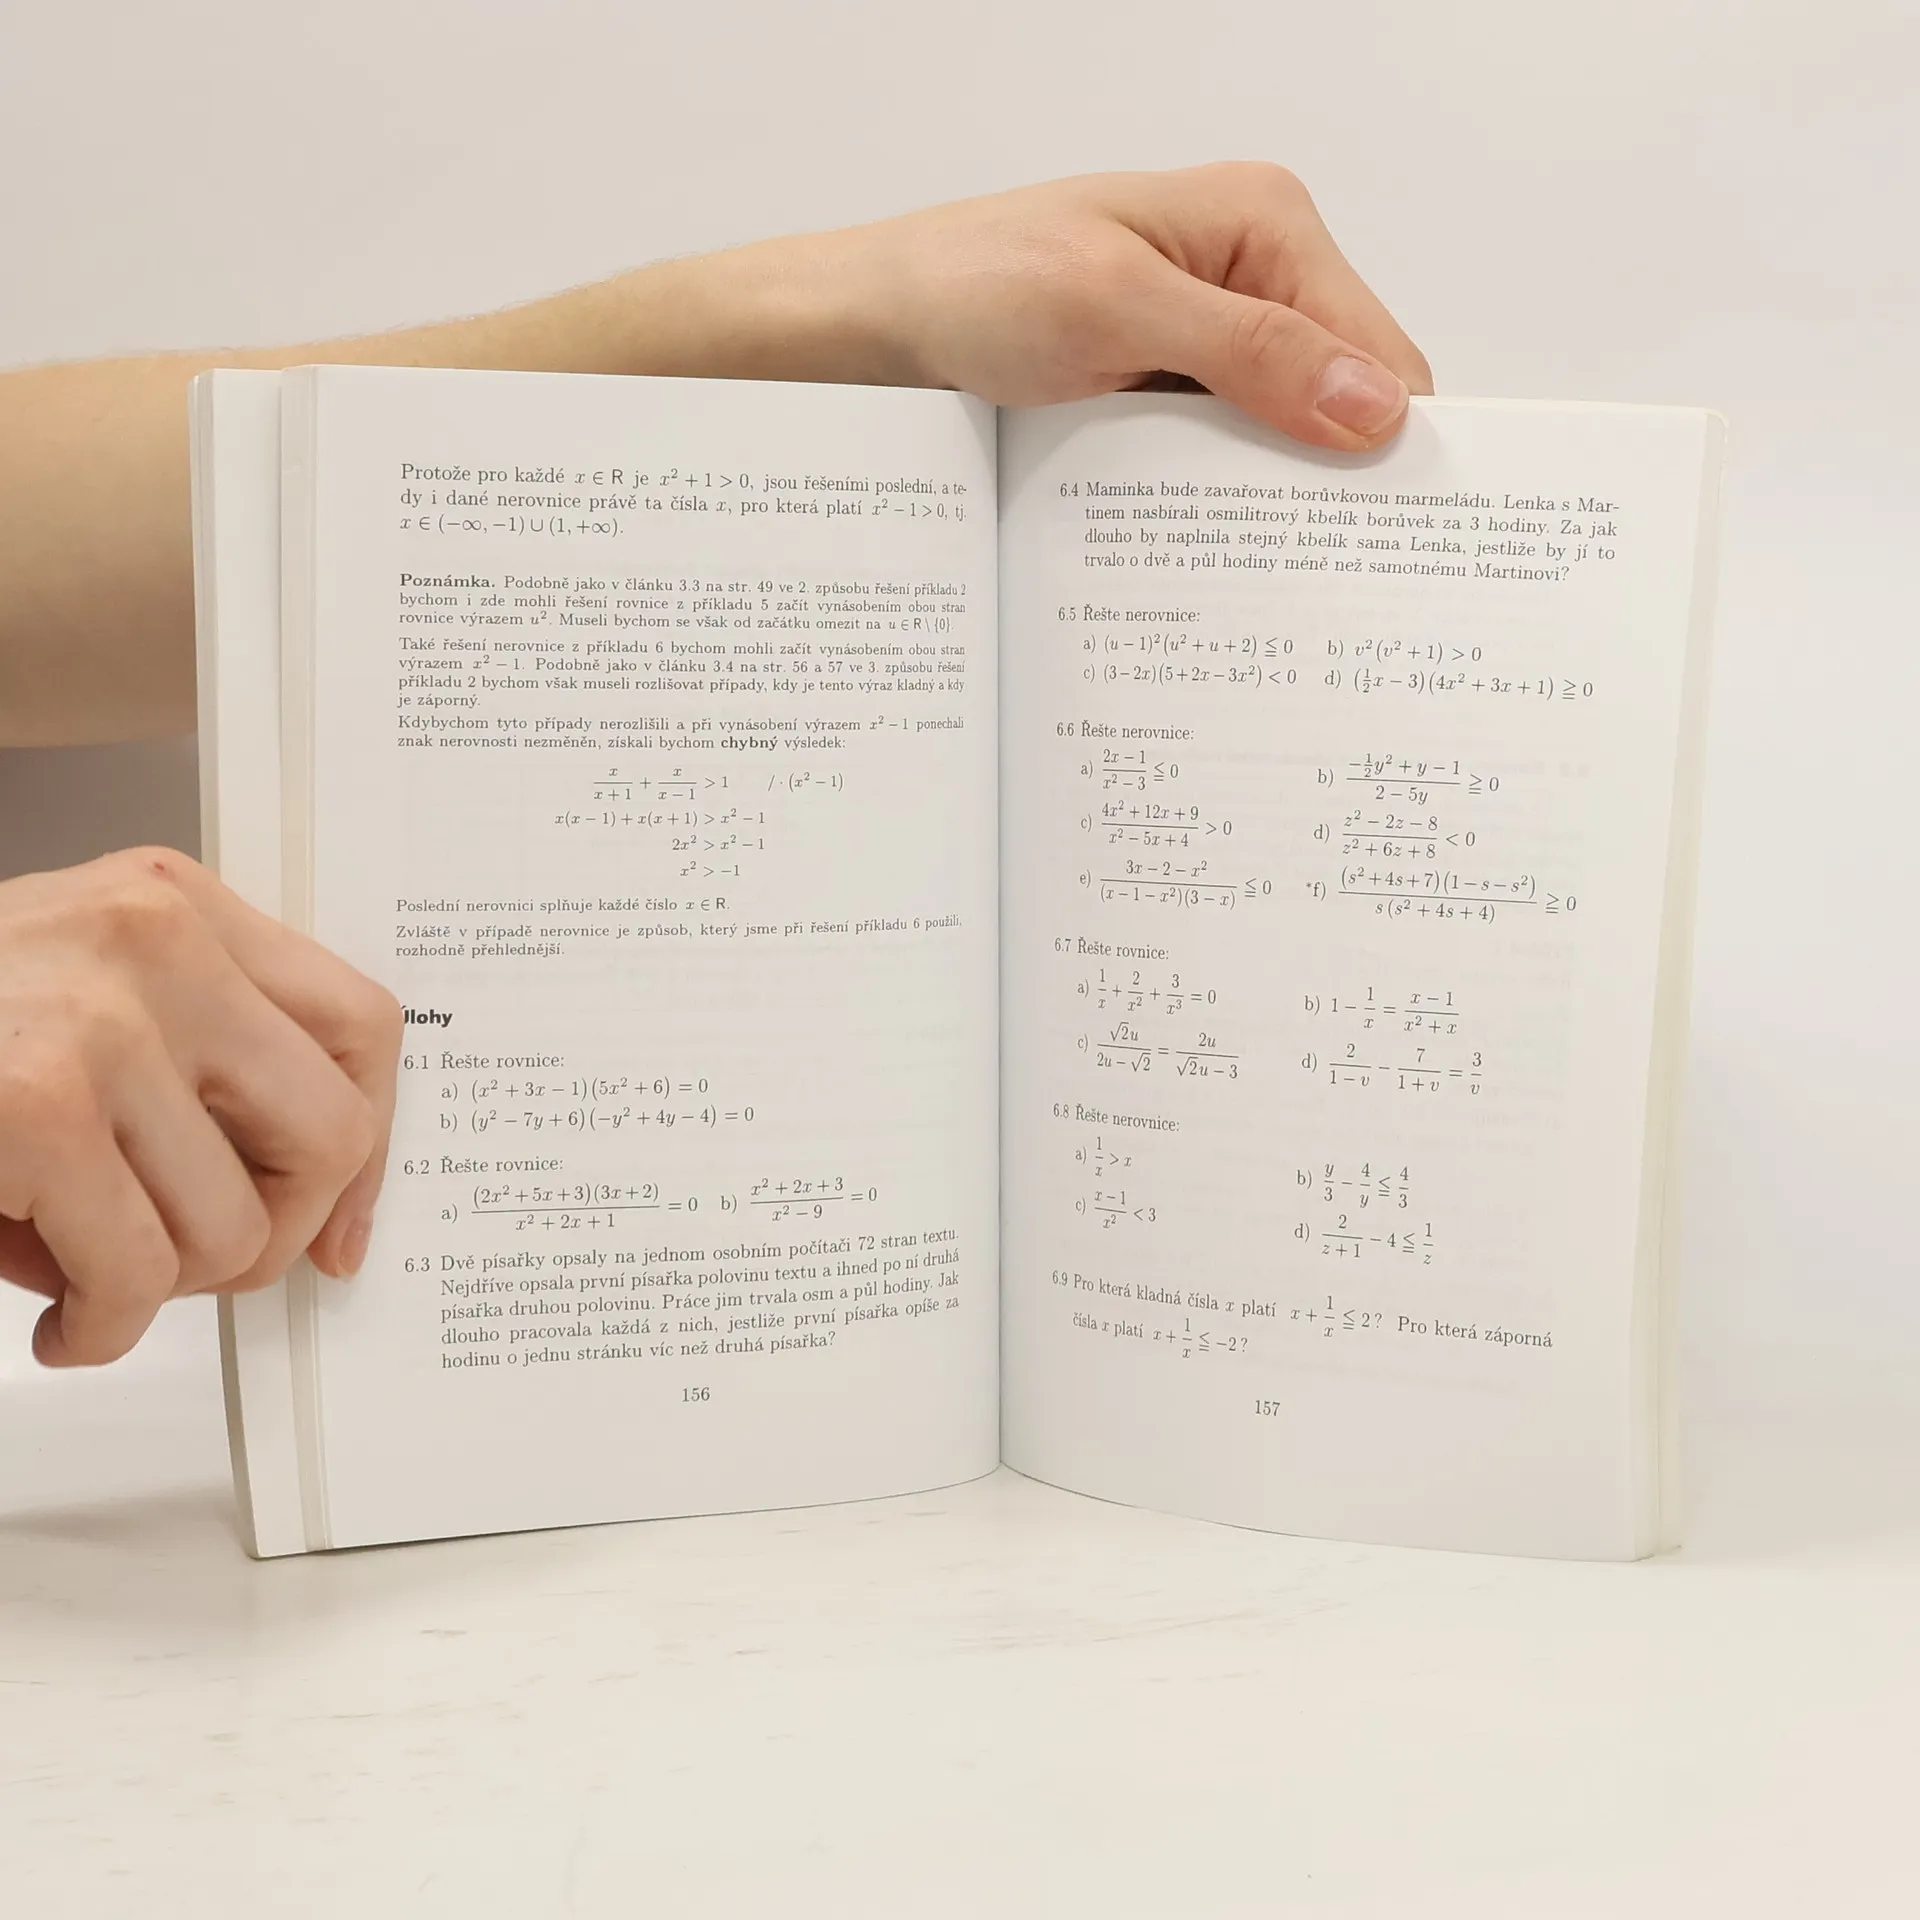 Protože pro každé x ∈ R je x² + 1 > 0, jsou řešeními poslední, a te-
dy i dané nerovnice právě ta čísla x, pro která platí x² − 1 > 0, tj.
x ∈ (−∞, −1) ∪ (1, +∞).
Poznámka. Podobně jako v článku 3.3 na str. 49 ve 2. způsobu řešení příkladu 2
bychom i zde mohli řešení rovnice z příkladu 5 začít vynásobením obou stran
rovnice výrazem u². Museli bychom se však od začátku omezit na u ∈ R \ {0}.
Také řešení nerovnice z příkladu 6 bychom mohli začít vynásobením obou stran
výrazem x² − 1. Podobně jako v článku 3.4 na str. 56 a 57 ve 3. způsobu řešení
příkladu 2 bychom však museli rozlišovat případy, kdy je tento výraz kladný a kdy
je záporný.
Kdybychom tyto případy nerozlišili a při vynásobení výrazem x² − 1 ponechali
znak nerovnosti nezměněn, získali bychom chybný výsledek:
x/(x + 1) + x/(x − 1) > 1 / · (x² − 1)
x(x − 1) + x(x + 1) > x² − 1
2x² > x² − 1
x² > −1
Poslední nerovnici splňuje každé číslo x ∈ R.
Zvláště v případě nerovnice je způsob, který jsme při řešení příkladu 6 použili,
rozhodně přehlednější.
Úlohy
6.1 Řešte rovnice:
a) (x² + 3x − 1)(5x² + 6) = 0
b) (y² − 7y + 6)(−y² + 4y − 4) = 0
6.2 Řešte rovnice:
a) (2x² + 5x + 3)(3x + 2)/(x² + 2x + 1) = 0 b) (x² + 2x + 3)/(x² − 9) = 0
6.3 Dvě písařky opsaly na jednom osobním počítači 72 stran textu.
Nejdříve opsala první písařka polovinu textu a ihned po ní druhá
písařka druhou polovinu. Práce jim trvala osm a půl hodiny. Jak
dlouho pracovala každá z nich, jestliže první písařka opíše za
hodinu o jednu stránku víc než druhá písařka?
156
6.4 Maminka bude zavařovat borůvkovou marmeládu. Lenka s Mar-
tinem nasbírali osmilitrový kbelík borůvek za 3 hodiny. Za jak
dlouho by naplnila stejný kbelík sama Lenka, jestliže by jí to
trvalo o dvě a půl hodiny méně než samotnému Martinovi?
6.5 Řešte nerovnice:
a) (u − 1)²(u² + u + 2) ≦ 0 b) v²(v² + 1) > 0
c) (3 − 2x)(5 + 2x − 3x²) < 0 d) (½x − 3)(4x² + 3x + 1) ≧ 0
6.6 Řešte nerovnice:
a) (2x − 1)/(x² − 3) ≦ 0 b) (−½y² + y − 1)/(2 − 5y) ≧ 0
c) (4x² + 12x + 9)/(x² − 5x + 4) > 0 d) (z² − 2z − 8)/(z² + 6z + 8) < 0
e) (3x − 2 − x²)/((x − 1 − x²)(3 − x)) ≦ 0 *f) (s² + 4s + 7)(1 − s − s²)/(s(s² + 4s + 4)) ≧ 0
6.7 Řešte rovnice:
a) 1/x + 2/x² + 3/x³ = 0 b) 1 − 1/x = (x − 1)/(x² + x)
c) √2u/(2u − √2) = 2u/(√2u − 3) d) 2/(1 − v) − 7/(1 + v) = 3/v
6.8 Řešte nerovnice:
a) 1/x > x b) y/3 − 4/y ≦ 4/3
c) (x − 1)/x² < 3 d) 2/(z + 1) − 4 ≦ 1/z
6.9 Pro která kladná čísla x platí x + 1/x ≦ 2? Pro která záporná
čísla x platí x + 1/x ≦ −2?
157